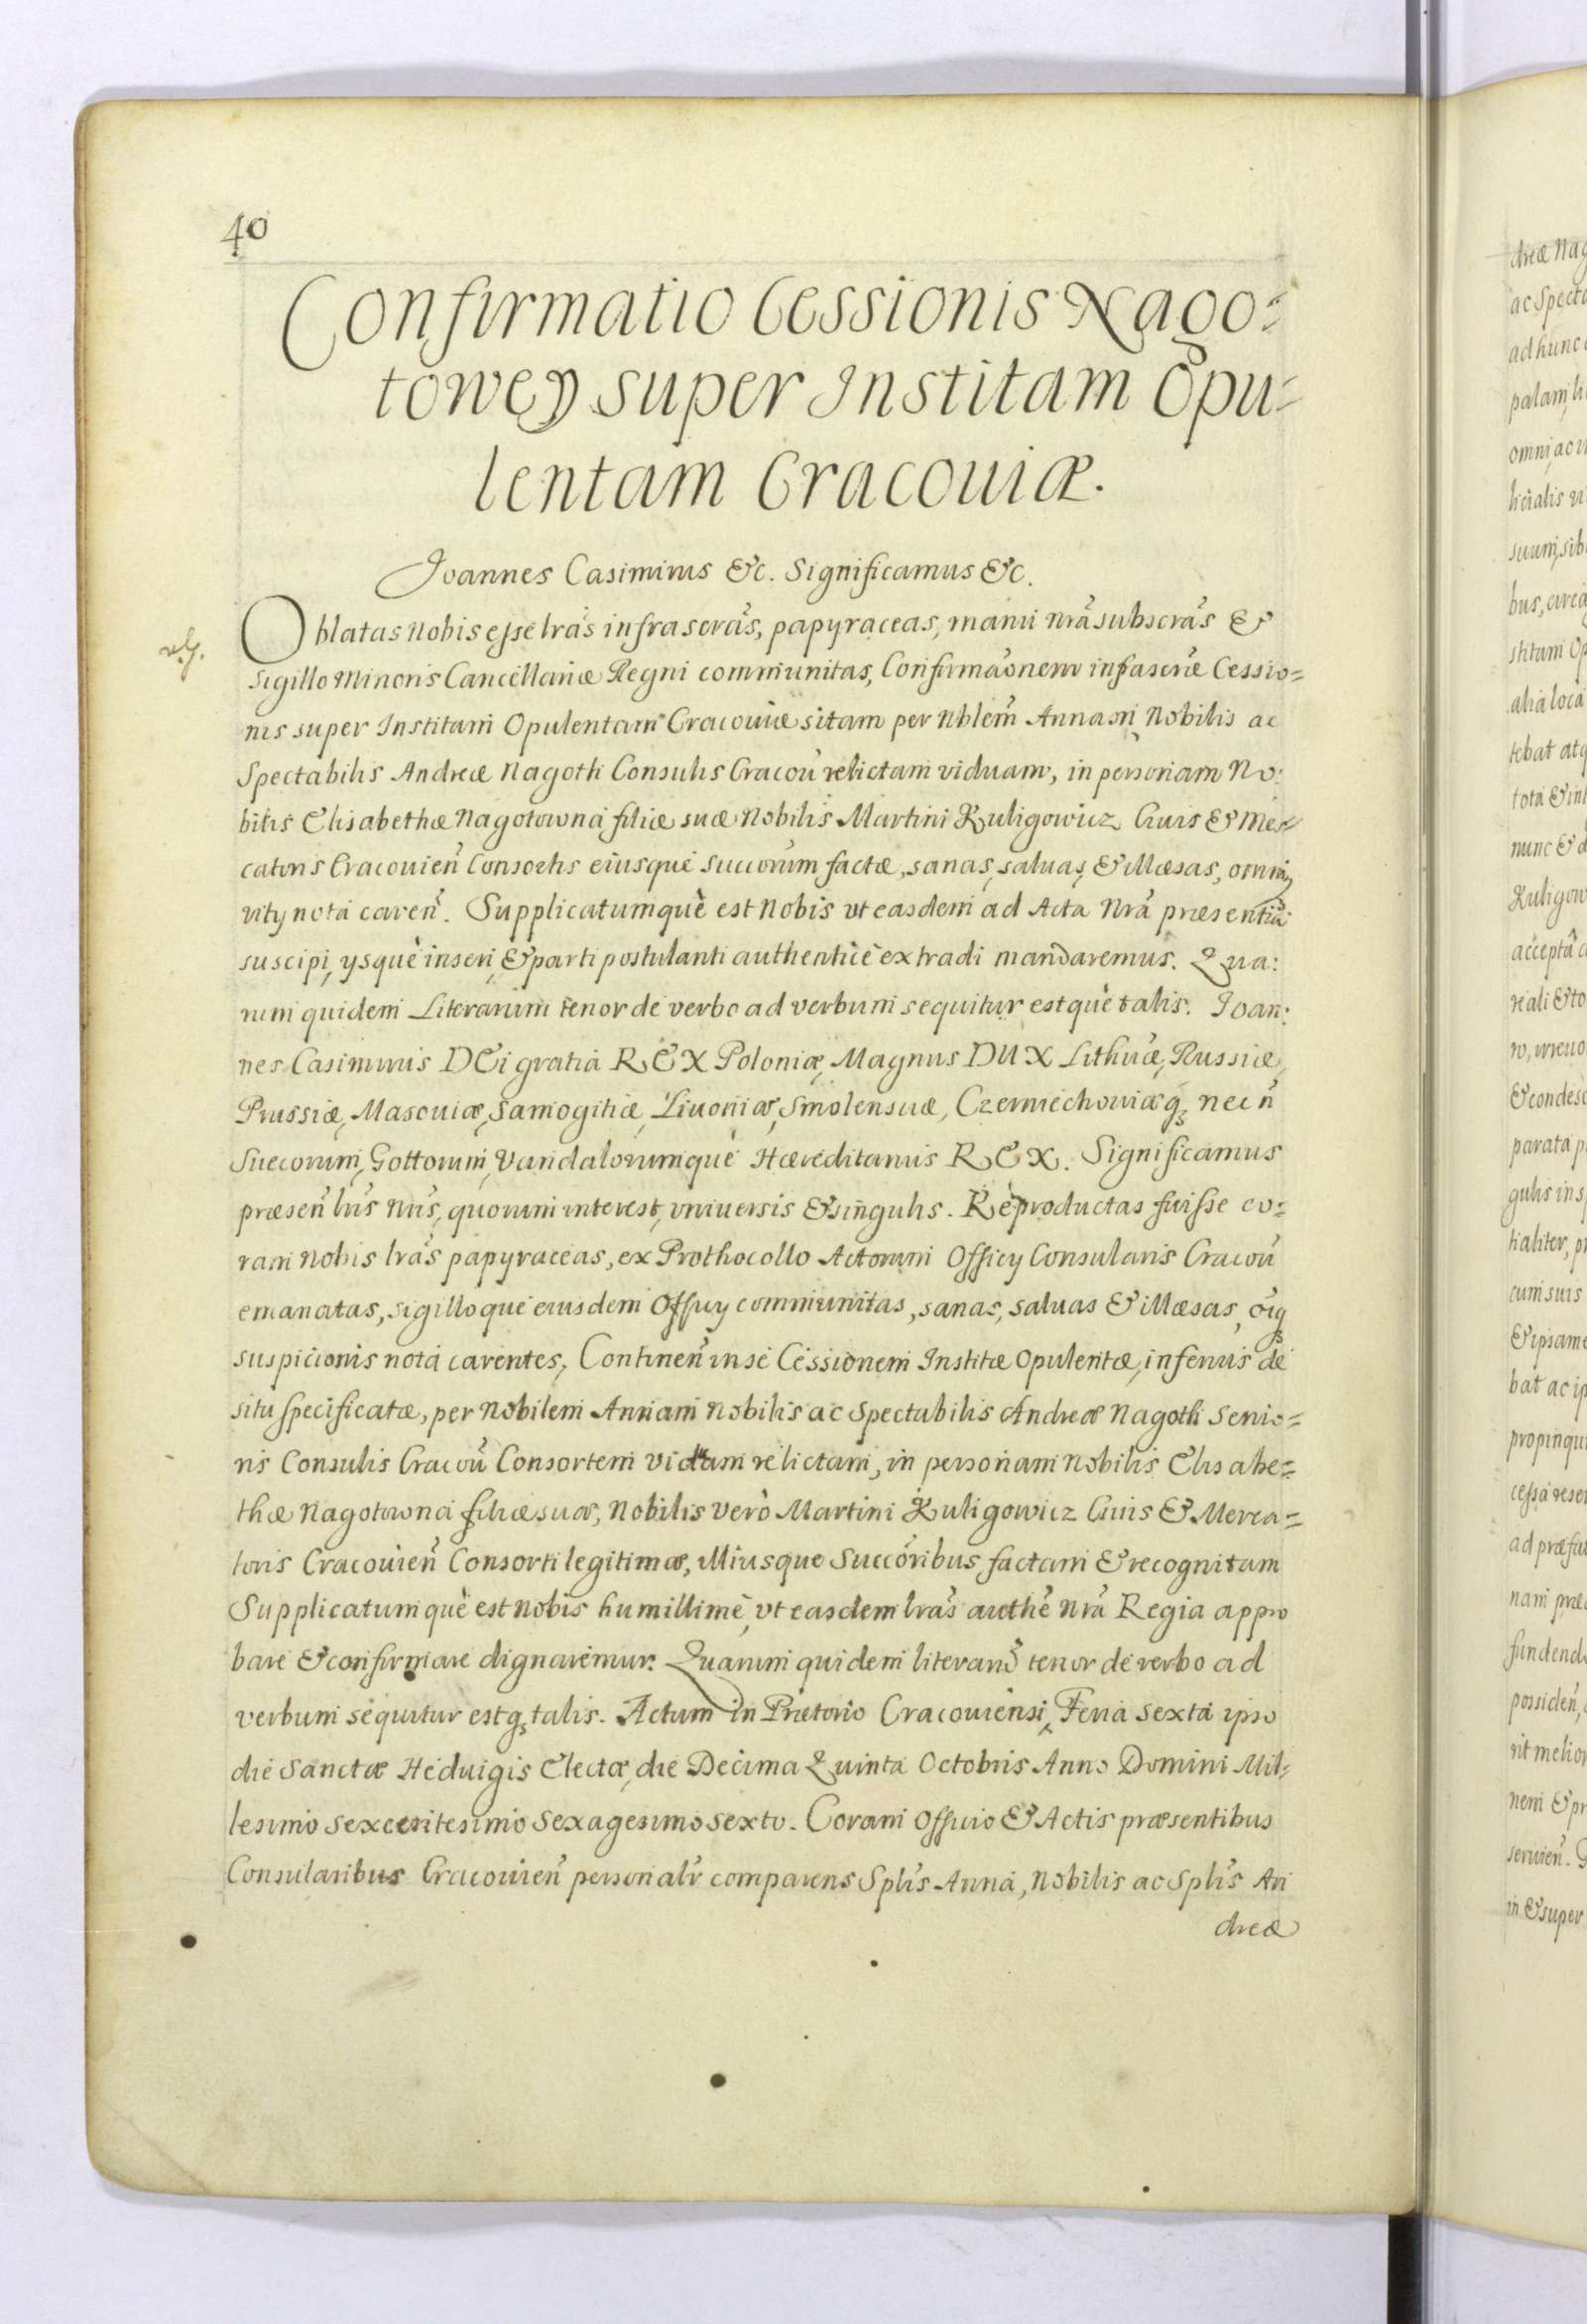 40
Confirmatio Cessionis Nago=
towey super Institam Opu=
lentam Cracouiæ.
Joannes Casimirus &c. Significamus &c.
Oblatas Nobis esse lrãs infrascrãs, papyraceas, manu nrã subscrãs &
sigillo Minoris Cancellariæ Regni communitas, Confirmãonem infascræ Cessio=
nis super Institam Opulentam Cracouiæ sitam per Nblem̃ Annam Nobilis ac
Spectabilis Andreæ Nagoth Consulis Cracoũ relictam viduam, in personam No:
bilis Elisabethæ Nagotowna filiæ suæ Nobilis Martini Kuligowicz Ciuis & Mer=
catoris Cracouien̄ Consortis eiusquè succorum factæ, sanas, saluas, & illæsas, omniq̢
vity nota caren̄. Supplicatumquè est Nobis vt easdem ad Acta Nrã præsentiã
suscipi, ysquè inseri, & parti postulanti authenticè extradi mandaremus. Qua:
rum quidem Literarum tenor de verbo ad verbum sequitur estquè talis. Joan:
nes Casimirus DEi gratia REX Poloniæ, Magnus DUX Lithuæ, Russiæ,
Prussiæ, Masouiæ, Samogitiæ, Liuoniæ, Smolensciæ, Czerniechouiæq̢ nec n̄
Suecorum, Gottorum, Vandalorumquè Hæreditarius REX. Significamus
præsen̄ lrĩs nrĩs, quorum interest, vniuersis & singulis. Reproductas fuisse co:
ram Nobis lrãs papyraceas, ex Prothocollo Actorum Officy Consularis Cracoũ
emanatas, sigilloquè eiusdem Officy communitas, sanas, saluas & illæsas, oĩq̢
suspicionis nota carentes, Continen̄ in se Cessionem Institæ Opulentæ, inferius de
situ specificatæ, per Nobilem Annam Nobilis ac Spectabilis Andreæ Nagoth Senio=
ris Consulis Cracoũ Consortem relictam, in personam Nobilis Elisabe=
thæ Nagotowna filiæ suæ, Nobilis verò Martini Kuligowicz Ciuis & Merca=
toris Cracouien̄ Consorti legitimæ, illiusque Succoribus factam & recognitam
Supplicatumquè est Nobis humillimè, vt easdem lrãs authẽ Nrã Regia appro
bare & confirmare dignaremur. Quarum quidem literarũ tenor de verbo ad
verbum sequitur estq̢ talis. Actum in Prætorio Cracouiensi, Feria sexta ipso
die Sanctæ Heduigis Electæ, die Decima Quinta Octobris Anno Domini Mil=
lesimo Sexcentesimo Sexagesimo sexto. Coram Officio & Actis præsentibus
Consularibus Cracouien̄ personalr̃ comparens Splĩs Anna, Nobilis ac Splĩs An
dreæ